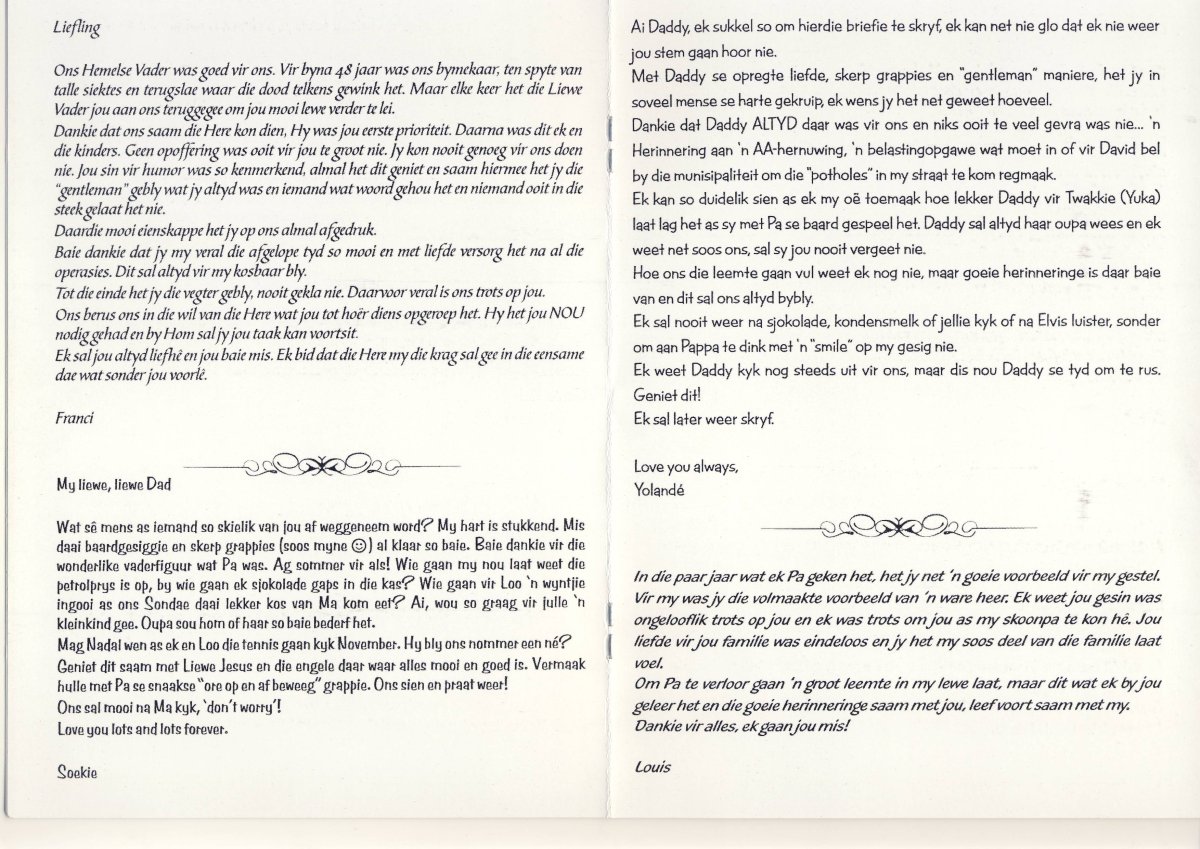 Liefling
Ons Hemelse Vader was goed vir ons. Vir byna 48 jaar was ons bymekaar, ten spyte van
talle siektes en terugslae waar die dood telkens gewink het. Maar elke keer het die Liewe
Vader jou aan ons teruggegee om jou mooi lewe verder te lei.
Dankie dat ons saam die Here kon dien, Hy was jou eerste prioriteit. Daarna was dit ek en
die kinders. Geen opoffering was ooit vir jou te groot nie. Jy kon nooit genoeg vir ons doen
nie. Jou sin vir humor was so kenmerkend, almal het dit geniet en saam hiermee het jy die
"gentleman" gebly wat jy altyd was en iemand wat woord gehou het en niemand ooit in die
steek gelaat het nie.
Daardie mooi eienskappe het jy op ons almal afgedruk.
Baie dankie dat jy my veral die afgelope tyd so mooi en met liefde versorg het na al die
operasies. Dit sal altyd vir my kosbaar bly.
Tot die einde het jy die vegter gebly, nooit gekla nie. Daarvoor veral is ons trots op jou.
Ons berus ons in die wil van die Here wat jou tot hoër diens opgeroep het. Hy het jou NOU
nodig gehad en by Hom sal jy jou taak kan voortsit.
Ek sal jou altyd liefhê en jou baie mis. Ek bid dat die Here my die krag sal gee in die eensame
dae wat sonder jou voorlê.
Franci
My liewe, liewe Dad
Wat sê mens as iemand so skielik van jou af weggeneem word? My hart is stukkend. Mis
daai baardgesiggie en skerp grappies (soos myne ☺) al klaar so baie. Baie dankie vir die
wonderlike vaderfiguur wat Pa was. Ag sommer vir als! Wie gaan my nou laat weet die
petrolprys is op, by wie gaan ek sjokolade gaps in die kas? Wie gaan vir Loo 'n wyntjie
ingooi as ons Sondae daai lekker kos van Ma kom eet? Ai, wou so graag vir julle 'n
kleinkind gee. Oupa sou hom of haar so baie bederf het.
Mag Nadal wen as ek en Loo die tennis gaan kyk November. Hy bly ons nommer een né?
Geniet dit saam met Liewe Jesus en die engele daar waar alles mooi en goed is. Vermaak
hulle met Pa se snaakse "ore op en af beweeg" grappie. Ons sien en praat weer!
Ons sal mooi na Ma kyk, 'don't worry'!
Love you lots and lots forever.
Soekie
Ai Daddy, ek sukkel so om hierdie briefie te skryf, ek kan net nie glo dat ek nie weer
jou stem gaan hoor nie.
Met Daddy se opregte liefde, skerp grappies en "gentleman" maniere, het jy in
soveel mense se harte gekruip, ek wens jy het net geweet hoeveel.
Dankie dat Daddy ALTYD daar was vir ons en niks ooit te veel gevra was nie... 'n
Herinnering aan 'n AA-hernuwing, 'n belastingopgawe wat moet in of vir David bel
by die munisipaliteit om die "potholes" in my straat te kom regmaak.
Ek kan so duidelik sien as ek my oë toemaak hoe lekker Daddy vir Twakkie (Yuka)
laat lag het as sy met Pa se baard gespeel het. Daddy sal altyd haar oupa wees en ek
weet net soos ons, sal sy jou nooit vergeet nie.
Hoe ons die leemte gaan vul weet ek nog nie, maar goeie herinneringe is daar baie
van en dit sal ons altyd bybly.
Ek sal nooit weer na sjokolade, kondensmelk of jellie kyk of na Elvis luister, sonder
om aan Pappa te dink met 'n "smile" op my gesig nie.
Ek weet Daddy kyk nog steeds uit vir ons, maar dis nou Daddy se tyd om te rus.
Geniet dit!
Ek sal later weer skryf.
Love you always,
Yolandé
In die paar jaar wat ek Pa geken het, het jy net 'n goeie voorbeeld vir my gestel.
Vir my was jy die volmaakte voorbeeld van 'n ware heer. Ek weet jou gesin was
ongelooflik trots op jou en ek was trots om jou as my skoonpa te kon hê. Jou
liefde vir jou familie was eindeloos en jy het my soos deel van die familie laat
voel.
Om Pa te verloor gaan 'n groot leemte in my lewe laat, maar dit wat ek by jou
geleer het en die goeie herinneringe saam met jou, leef voort saam met my.
Dankie vir alles, ek gaan jou mis!
Louis